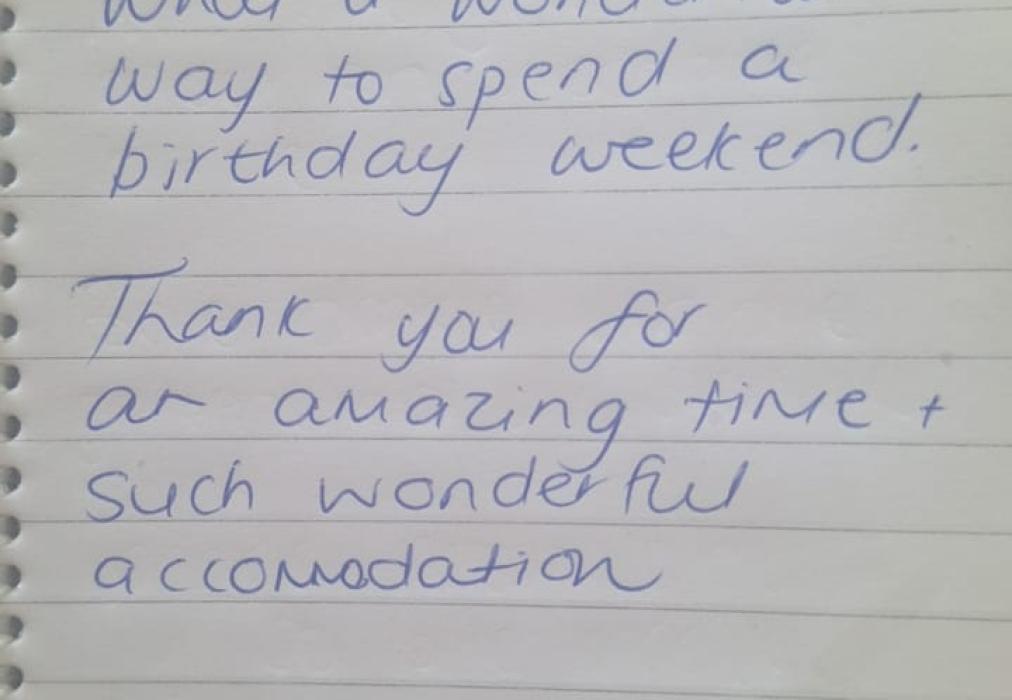 What a wond
way to spend a
birthday weekend.
Thank you for
an amazing time +
such wonderful
accomodation